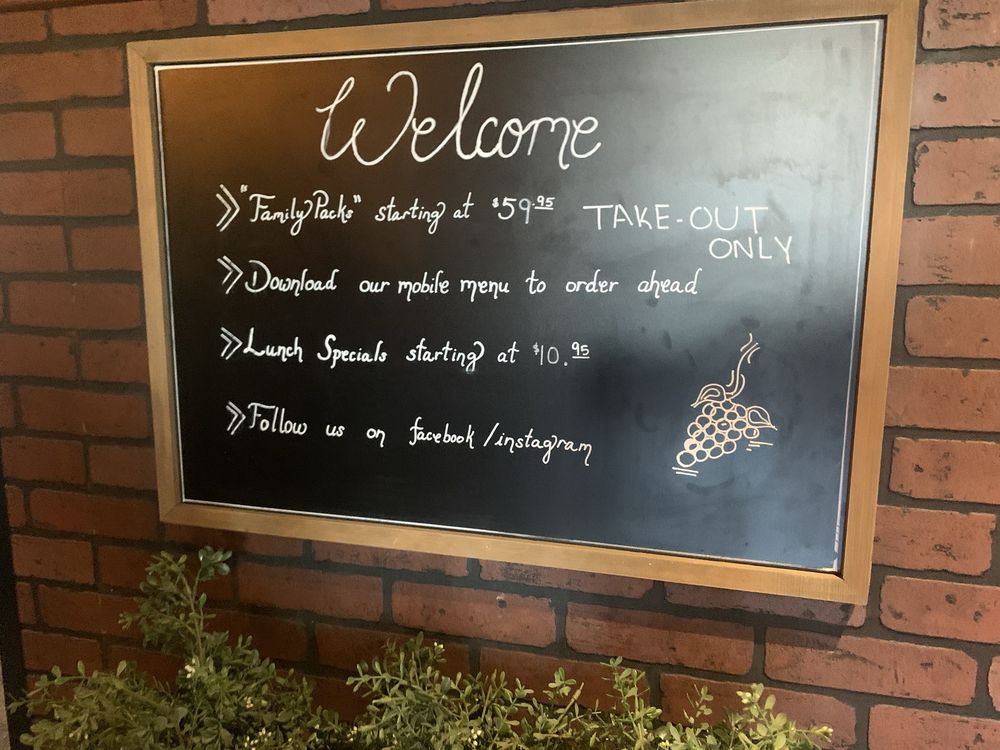 Welcome
"Family Packs" starting at $59.95 TAKE-OUT
ONLY
Download our mobile menu to order ahead
Lunch Specials starting at $10.95
Follow us on facebook/instagram